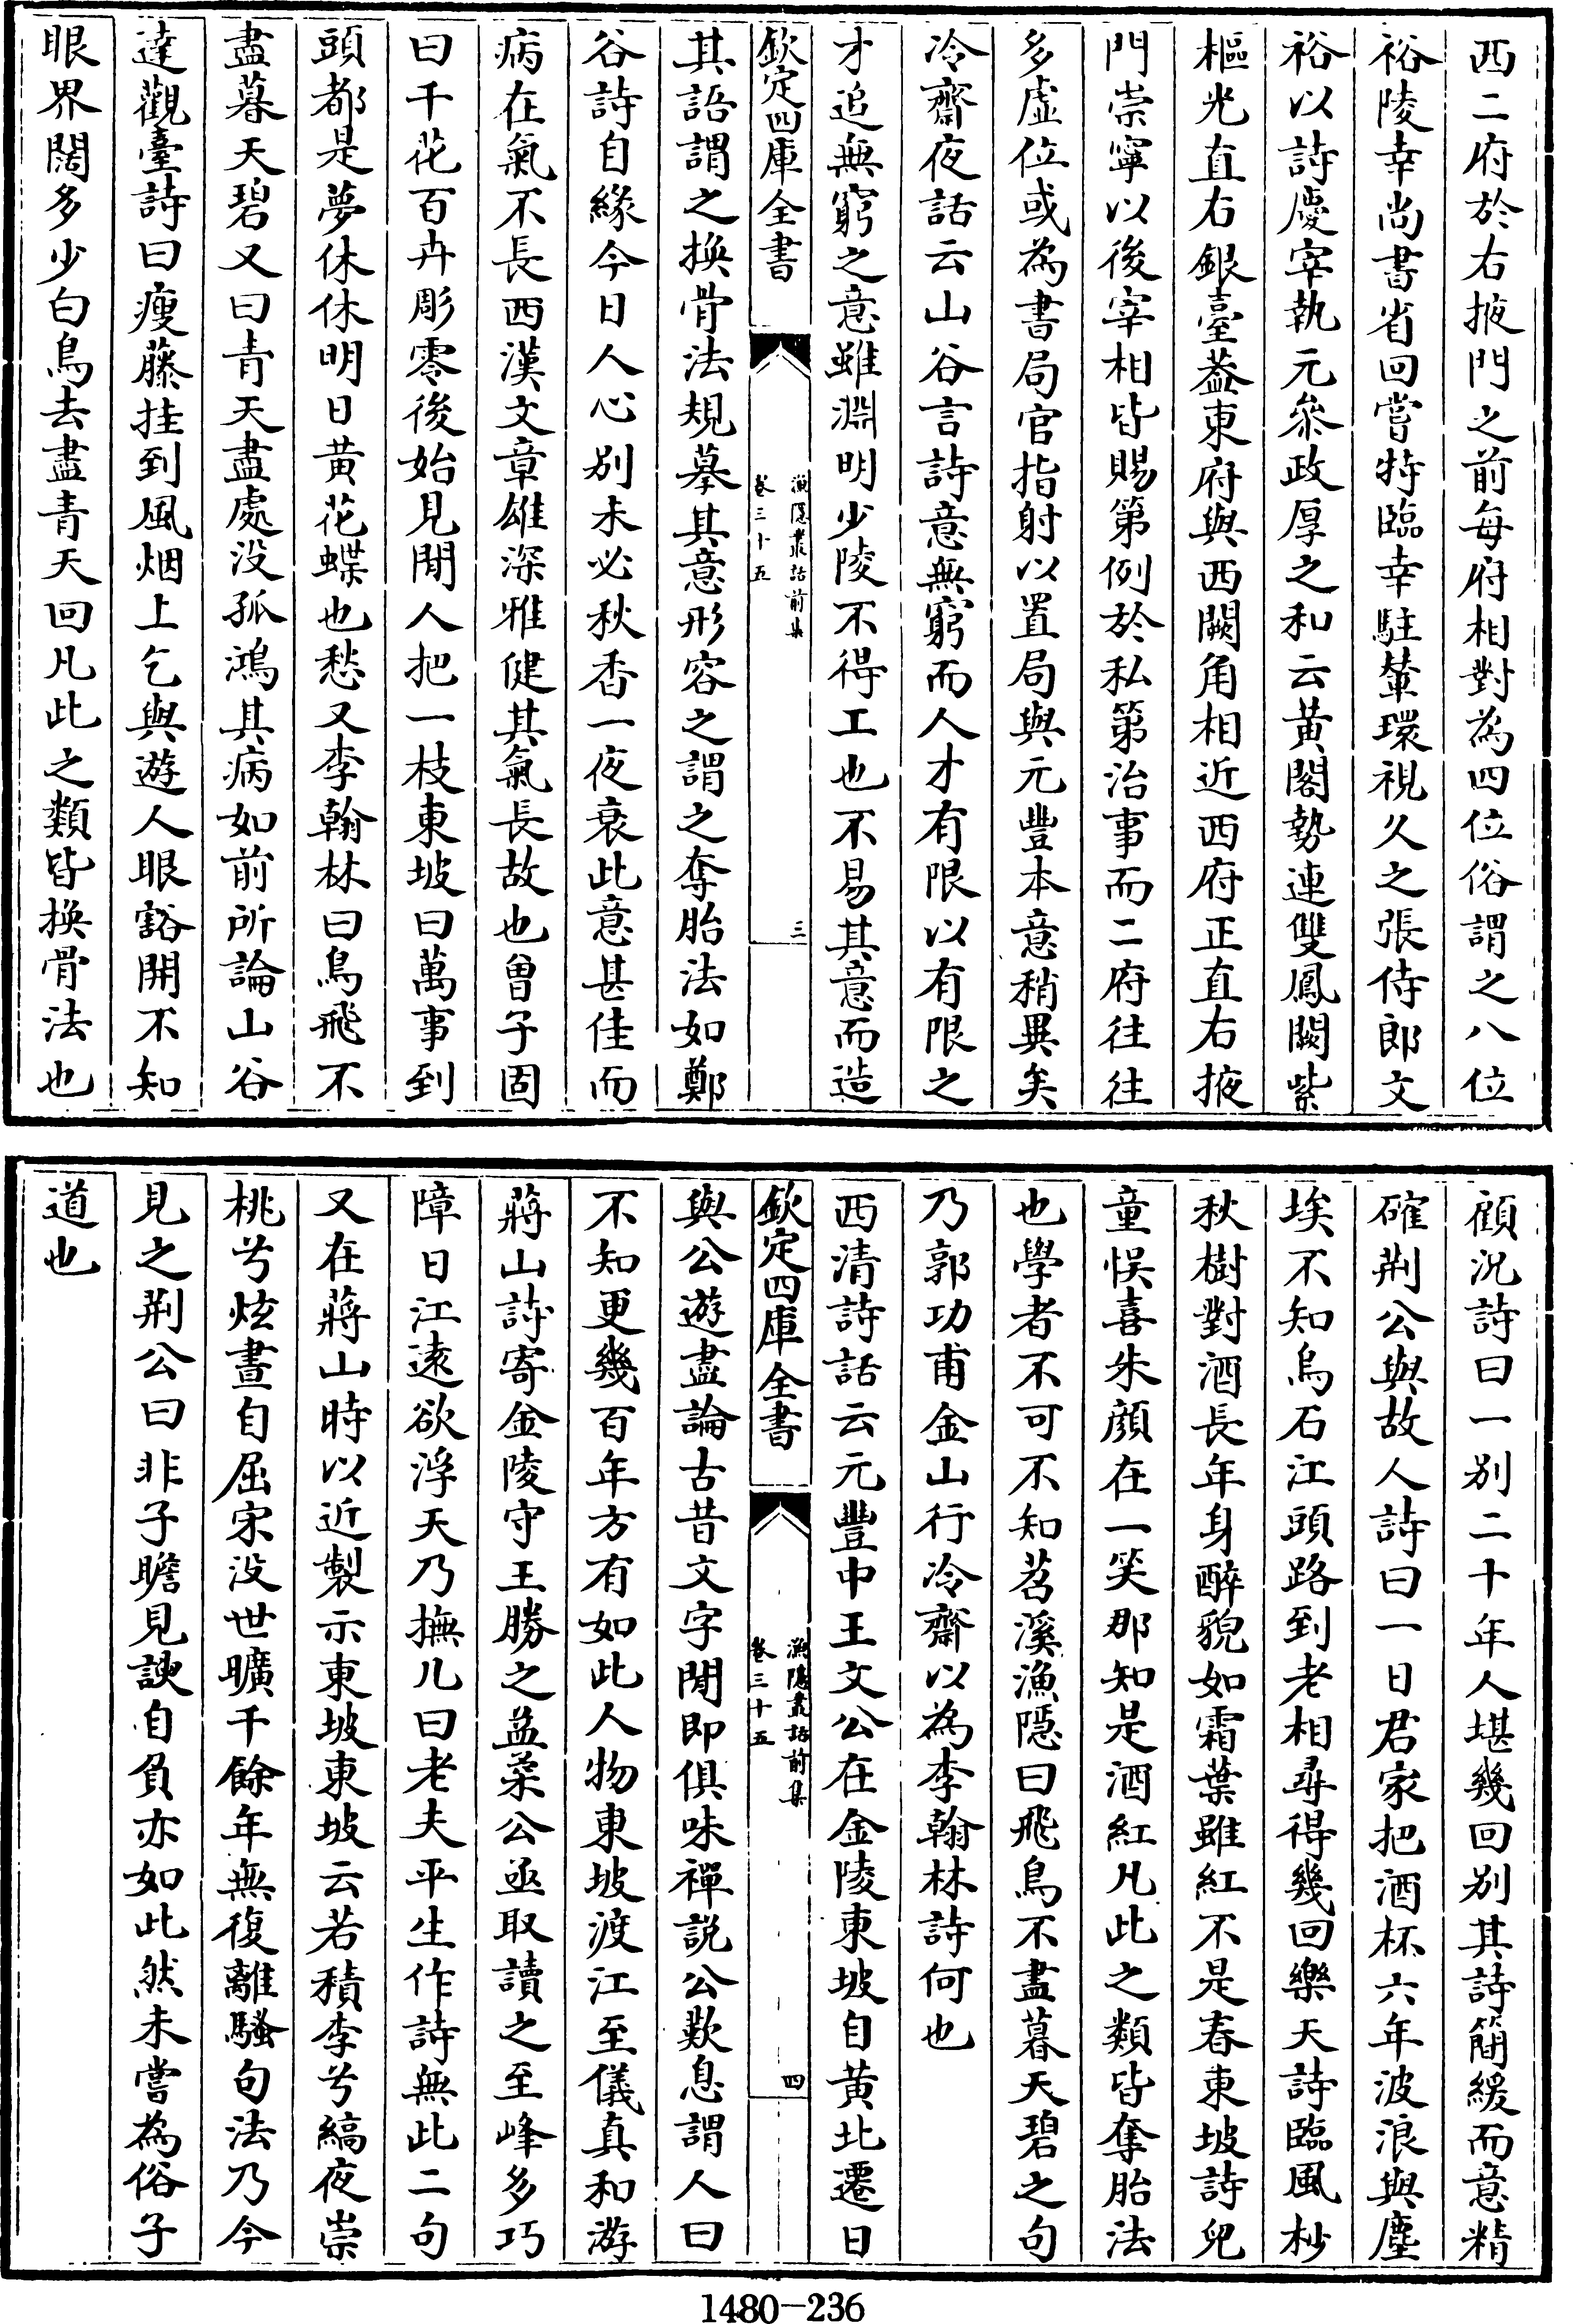 西二府於右掖門之前每府相對為四位俗謂之八位
裕陵幸尚書省回嘗特臨幸駐輦環視久之張侍郎文
裕以詩慶宰執元叅政厚之和云黄閣勢連雙鳳闕紫
樞光直右銀臺葢東府與西闕角相近西府正直右掖
門崇寧以後宰相皆賜第例於私第治事而二府往往
多虚位或為書局官指射以置局與元豐本意稍異矣
冷齋夜話云山谷言詩意無窮而人才有限以有限之
才追無窮之意雖淵明少陵不得工也不易其意而造
欽定四庫全書
漁隱叢話前集
卷三十五
三
其語謂之換骨法規摹其意形容之謂之奪胎法如鄭
谷詩自緣今日人心别未必秋香一夜衰此意甚佳而
病在氣不長西漢文章雄深雅健其氣長故也曾子固
曰千花百卉彫零後始見閒人把一枝東坡曰萬事到
頭都是夢休休明日黄花蝶也愁又李翰林曰鳥飛不
盡暮天碧又曰青天盡處没孤鴻其病如前所論山谷
達觀臺詩曰瘦藤挂到風烟上乞與遊人眼豁開不知
眼界闊多少白鳥去盡青天回凡此之類皆換骨法也
顧况詩曰一别二十年人堪幾回别其詩簡緩而意精
確荆公與故人詩曰一日君家把酒杯六年波浪與塵
埃不知烏石江頭路到老相尋得幾回樂天詩臨風杪
秋樹對酒長年身醉貌如霜葉雖紅不是春東坡詩兒
童悞喜朱顔在一笑那知是酒紅凡此之類皆奪胎法
也學者不可不知苕溪漁隱曰飛鳥不盡暮天碧之句
乃郭功甫金山行冷齋以為李翰林詩何也
西清詩話云元豐中王文公在金陵東坡自黄北遷日
欽定四庫全書
漁隱叢話前集
卷三十五
四
與公遊盡論古昔文字閒即俱味禪説公歎息謂人曰
不知更幾百年方有如此人物東坡渡江至儀真和游
蔣山詩寄金陵守王勝之益柔公亟取讀之至峰多巧
障日江遠欲浮天乃撫几曰老夫平生作詩無此二句
又在蔣山時以近製示東坡東坡云若積李兮縞夜崇
桃兮炫晝自屈宋没世曠千餘年無復離騷句法乃今
見之荆公曰非子瞻見諛自負亦如此然未嘗為俗子
道也
1480—236